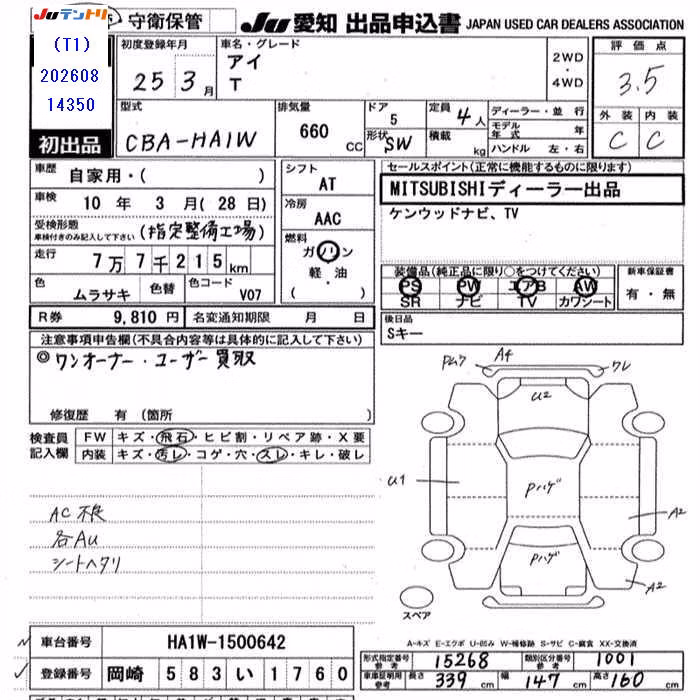 JUテントリ 守衛保管 Ju 愛知 出品申込書 JAPAN USED CAR DEALERS ASSOCIATION
(T1)
202608
14350
初出品
初度登録年月 25 3月
車名・グレード アイ
T
2WD・4WD
評価点 3.5
外装 内装
C C
型式 CBA-HA1W
排気量 660 CC
ドア 5
形状 SW
定員 4人
積載 kg
ディーラー・並行
モデル年式 年
ハンドル 左・右
車歴 自家用・( )
車検 10年 3月(28日)
受検形態 車検付きのみ記入して下さい (指定整備工場)
走行 7万7千215km
色 ムラサキ 色替 色コード V07
シフト AT
冷房 AAC
燃料 ガソリン
軽・油
( )
セールスポイント(正常に機能するものに限ります)
MITSUBISHIディーラー出品
ケンウッドナビ、TV
装備品(純正品に限り○をつけてください)
PS PW エアB AW
SR ナビ TV カワシート
新車保証書
有・無
R券 9,810円 名変通知期限 月 日
後日品
Sキー
注意事項申告欄(不具合内容等は具体的に記入して下さい)
◎ワンオーナー・ユーザー買取
修復歴 有(箇所
検査員記入欄
FW キズ・飛石・ヒビ割・リペア跡・X要
内装 キズ・汚レ・コゲ・穴・スレ・キレ・破レ
AC不良
各AU
シートヘタリ
A4 ワレ
U2
U1
Pハゲ
A2
Pハゲ
A2
スペア
A-キズ E-エクボ U-凹み W-補修跡 S-サビ C-腐食 XX-交換済
車台番号 HA1W-1500642
登録番号 岡崎 583い1760
形式指定番号 参考 15268 類別区分番号 参考 1001
車庫証明用 参考 長さ 339cm 幅 147cm 高さ 160cm